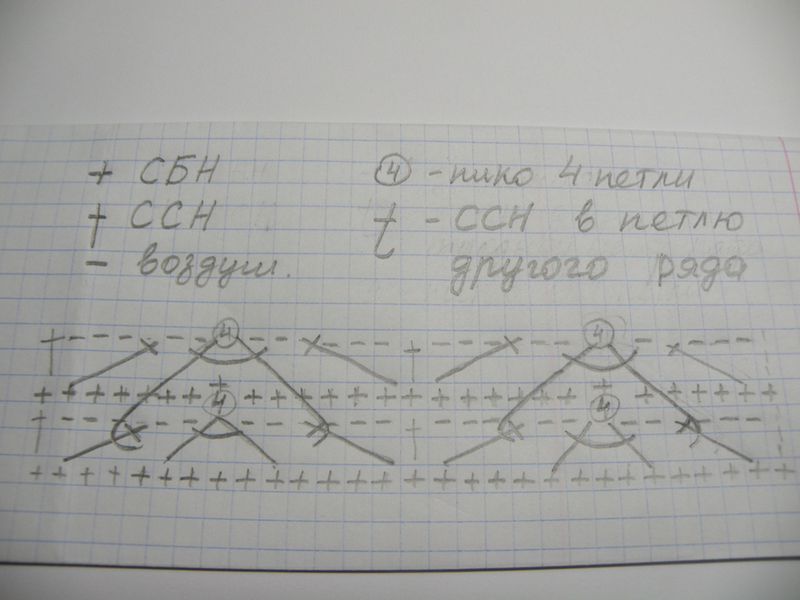 + СБН
† ССН
- воздуш.
④ - пико 4 петли
† - ССН в петлю
другого ряда
4 4
4 4